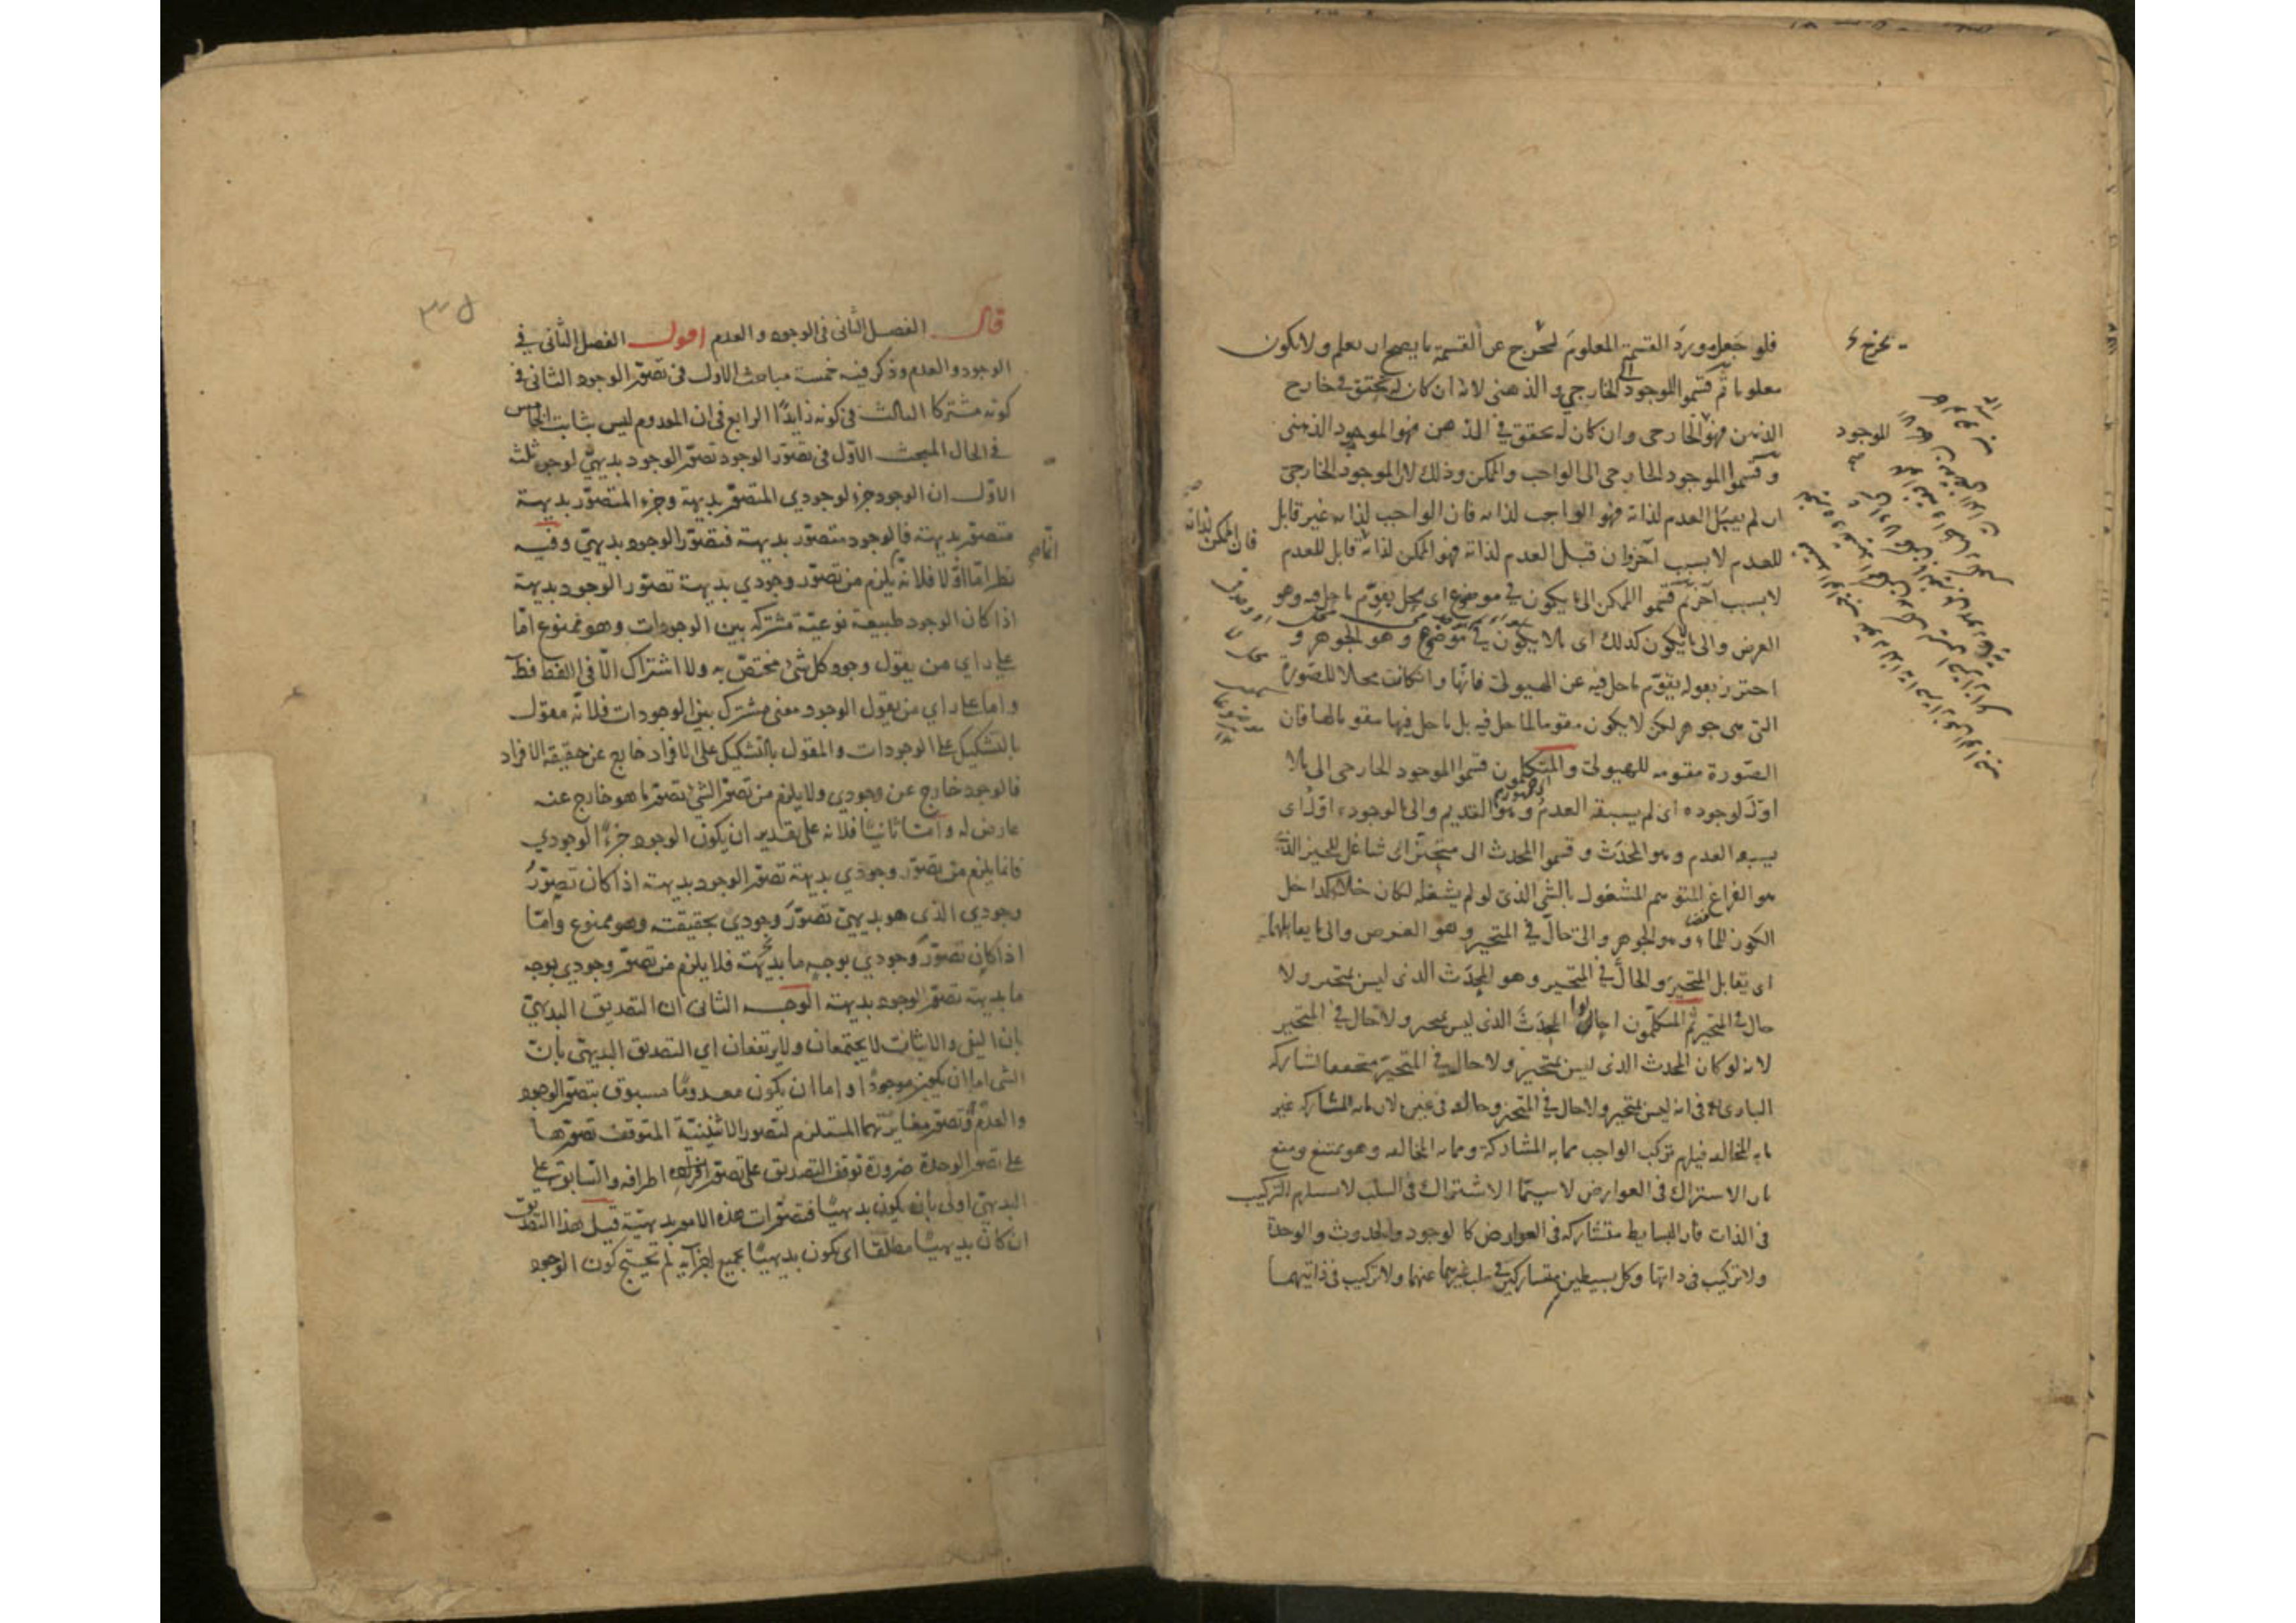 فلو جعل مورد القسمة المعلوم لخرج عن القسمة ما يصح ان يعلم ولا يكون
معلوما ثم قسموا الموجود الى الخارجي والذهنى لانه ان كان له تحقق في خارج
الذهن فهو الخارجى وان كان له تحقق في الذهن فهو الموجود الذهنى
وقسموا الموجود الخارجى الى الواجب والممكن وذلك لان الموجود الخارجى
ان لم يقبل العدم لذاته فهو الواجب لذاته فان الواجب لذاته غير قابل
للعدم لا بسبب آخر وان قبل العدم لذاته فهو الممكن لذاته قابل للعدم
فان الممكن لذاته
لا بسبب آخر ثم قسموا الممكن الى ما يكون في موضوع اى محل يقوم ما حل فيه وهو
العرض والى ما لا يكون كذلك اى ما لا يكون في موضوع وهو الجوهر و
احترز بقوله يقوم ما حل فيه عن الهيولى فانها وان كانت محلا للصورة
التى هى جوهر لكن لا يكون مقوما لما حل فيه بل ما حل فيها مقوما لها فان
الصورة مقومه للهيولى والمتكلمون قسموا الموجود الخارجى الى ما لا
اول لوجوده اى لم يسبقه العدم وهو القديم والى ما لوجوده اول اى
يسبقه العدم وهو المحدث وقسموا المحدث الى متحيز اى شاغل للحيز الذى
هو الفراغ المتوهم المشغول بالشئ الذى لو لم يشغله لكان خلاء كداخل
الكوز للماء وهو الجوهر والى حال في المتحيز وهو العرض والى ما يقابلهما
اى يقابل المتحيز والحال في المتحيز وهو المحدث الذى ليس بمتحيز ولا
حال في المتحيز ثم المتكلمون احالوا المحدث الذى ليس بمتحيز ولا حال في المتحيز
لانه لو كان المحدث الذى ليس بمتحيز ولا حال في المتحيز متحققا لشاركه
البارى فى انه ليس بمتحيز ولا حال في المتحيز وخالفه فى غيره لان ما به المشاركه غير
ما به المخالفه فيلزم تركب الواجب مما به المشاركة ومما به المخالفه وهو ممتنع ومنع
بان الاشتراك فى العوارض لا سيما الاشتراك فى السلب لا يستلزم التركيب
فى الذات فان البسايط متشاركه فى العوارض كالوجود والحدوث والوحدة
ولا تركيب فى ذاتها وكل بسيطين متشاركين في سلب غيرهما عنهما ولا تركيب فى ذاتيهما
يخرج
الموجود
قال الفصل الثانى فى الوجود والعدم اقول الفصل الثانى في
الوجود والعدم وذكر فيه خمسة مباحث الاول فى تصور الوجود الثانى فى
كونه مشتركا الثالث فى كونه زايدا الرابع فى ان المعدوم ليس بثابت الخامس
فى الحال المبحث الاول فى تصور الوجود تصور الوجود بديهى لوجوه ثلث
الاول ان الوجود جزء لوجودي المتصور بديهة وجزء المتصور بديهة
متصور بديهة فالوجود متصور بديهة فتصور الوجود بديهى وفيه
نظر اما اولا فلانه يلزم من تصور وجودي بديهة تصور الوجود بديهة
انما
اذا كان الوجود طبيعة نوعية مشتركه بين الوجودات وهو ممنوع اما
على راي من يقول وجود كل شئ مختص به ولا اشتراك الا في اللفظ فظ
واما على راي من يقول الوجود معنى مشترك بين الوجودات فلانه مقول
بالتشكيك على الوجودات والمقول بالتشكيك على الافراد خارج عن حقيقة الافراد
فالوجود خارج عن وجودي ولا يلزم من تصور الشئ تصور ما هو خارج عنه
عارض له واما ثانيا فلانه على تقدير ان يكون الوجود جزءا لوجودي
فانما يلزم من تصور وجودي بديهة تصور الوجود بديهة اذا كان تصور
وجودي الذى هو بديهى تصور وجودي بحقيقته وهو ممنوع واما
اذا كان تصور وجودي بوجه ما بديهة فلا يلزم من تصور وجودي بوجه
ما بديهة تصور الوجود بديهة الوجه الثانى ان التصديق البديهى
بان النفى والاثبات لا يجتمعان ولا يرتفعان اي التصديق البديهى بان
الشئ اما ان يكون موجودا واما ان يكون معدوما مسبوق بتصور الوجود
والعدم وتصور مغايرتهما المستلزم لتصور الاثنينية المتوقف تصورها
على تصور الوحدة ضرورة توقف التصديق على تصور اطرافه والسابق على
البديهى اولى بان يكون بديهيا فتصورات هذه الامور بديهية قيل هذا التصديق
ان كان بديهيا مطلقا اى يكون بديهيا بجميع اجزآيه لم تحتج كون الوجود